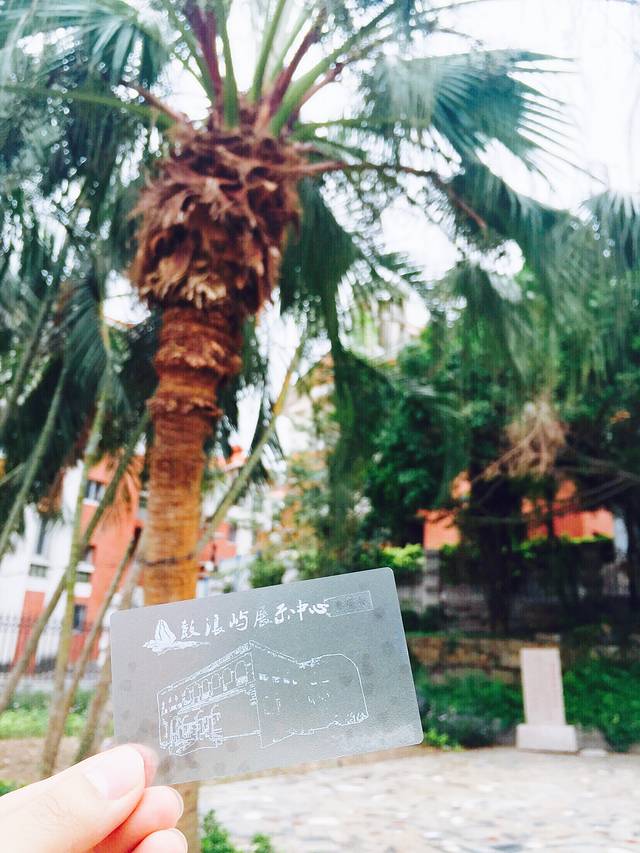 鼓浪屿展示中心